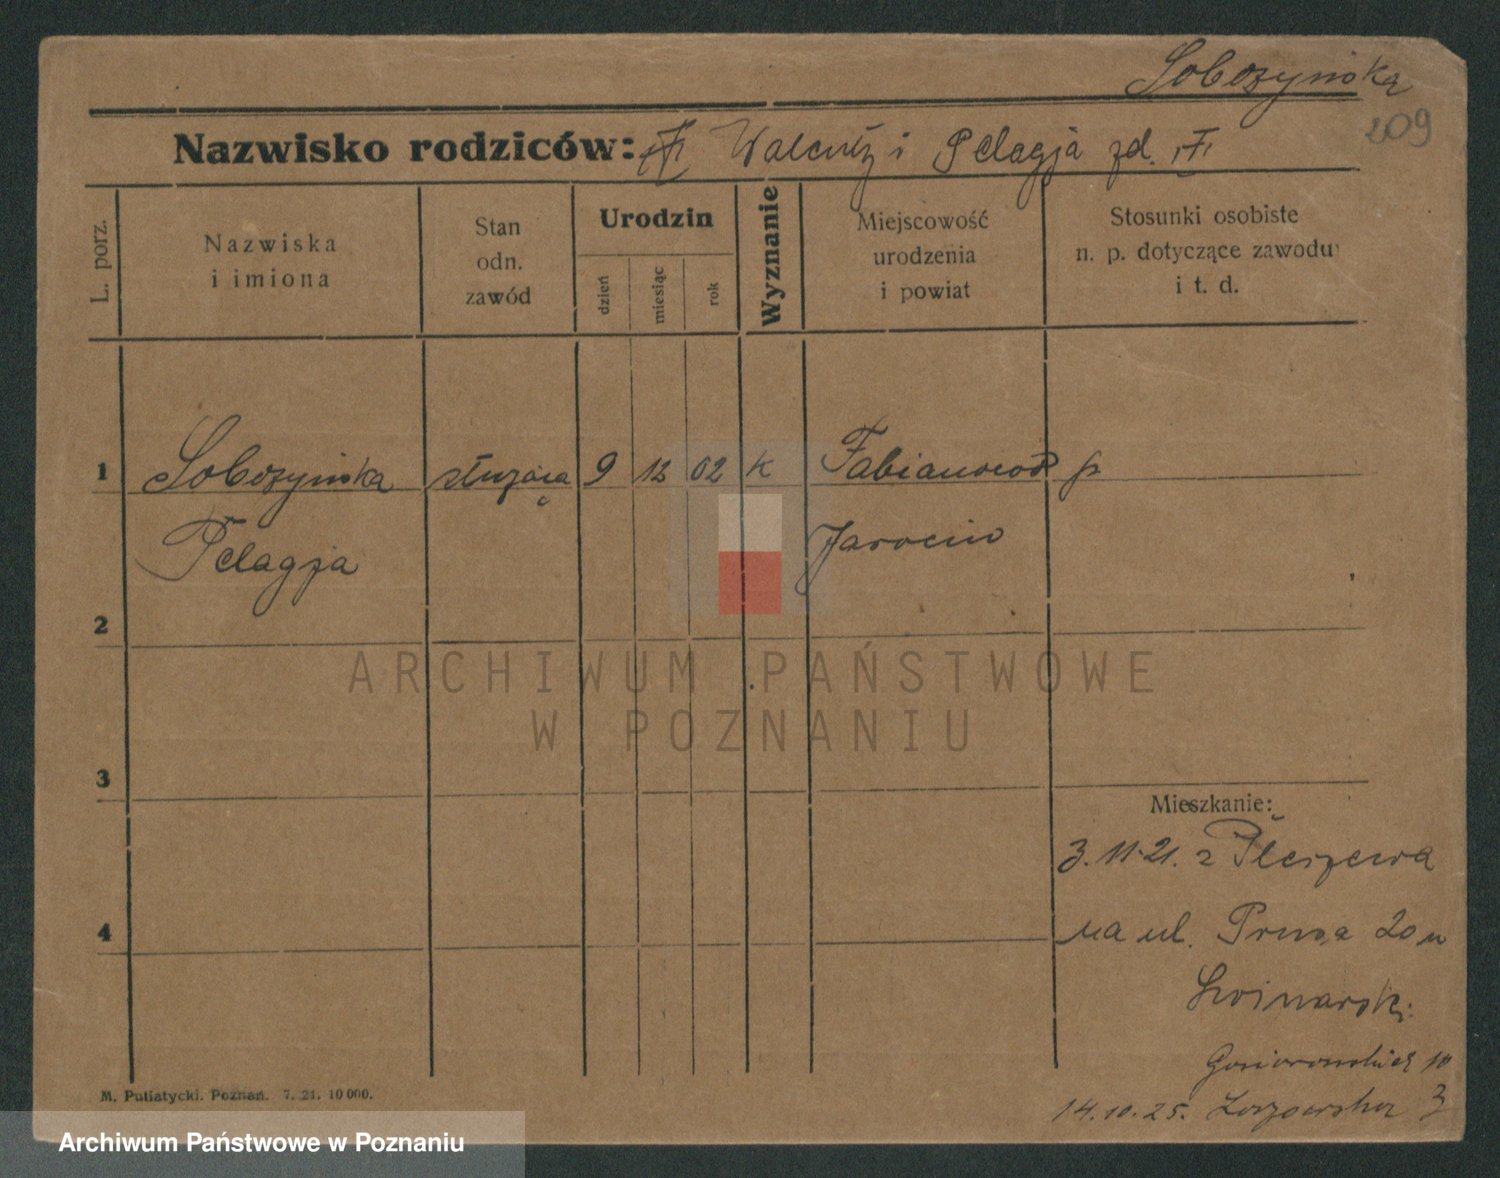 Sobczyńska
209
Nazwisko rodziców: Walenty i Pelagja zd.
L. porz.
Nazwiska i imiona
Stan odn. zawód
Urodzin
dzień
miesiąc
rok
Wyznanie
Miejscowość urodzenia i powiat
Stosunki osobiste n. p. dotyczące zawodu i t. d.
1 Sobczyńska służąca 9 12 02 k Fabianowo p
Pelagja Jarocin
2
ARCHIWUM PAŃSTWOWE
W POZNANIU
3
Mieszkanie:
3.11.21. z Pleszewa
4 na ul. 20 u
14.10.25. 3
M. Putiatycki. Poznań. 7. 21. 10 000.
Archiwum Państwowe w Poznaniu